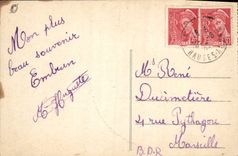 Mon plus
beau souvenir
Embrun
Huguette
Mr René
4 rue Pythagore
Marseille
B.D.R
HAUTES